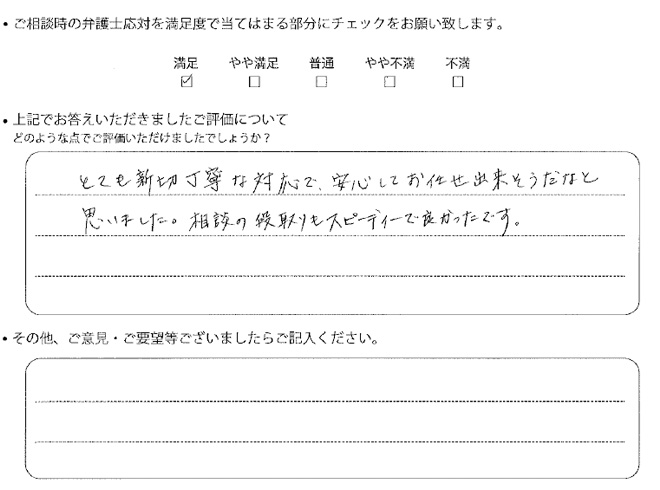 ・ご相談時の弁護士応対を満足度で当てはまる部分にチェックをお願い致します。
満足 やや満足 普通 やや不満 不満
☑ □ □ □ □
・上記でお答えいただきましたご評価について
どのような点でご評価いただけましたでしょうか？
とても親切丁寧な対応で、安心してお任せ出来そうだなと
思いました。相談の段取りもスピーディーで良かったです。
・その他、ご意見・ご要望等ございましたらご記入ください。